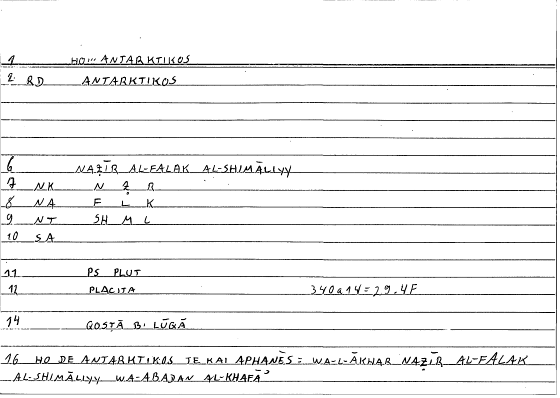 1 HO... ANTARKTIKOS
2 RD ANTARKTIKOS
6 NAẒĪR AL-FALAK AL-SHIMĀLIYY
7 NK N Ẓ R
8 NA F L K
9 NT SH M L
10 SA
11 PS PLUT
12 PLACITA 340a14=29.4F
14 QOSṬĀ B. LŪQĀ
16 HO DE ANTARKTIKOS TE KAI APHANĒS = WA-L-ĀKHAR NAẒĪR AL-FALAK
AL-SHIMĀLIYY WA-ABADAN AL-KHAFĀʾ